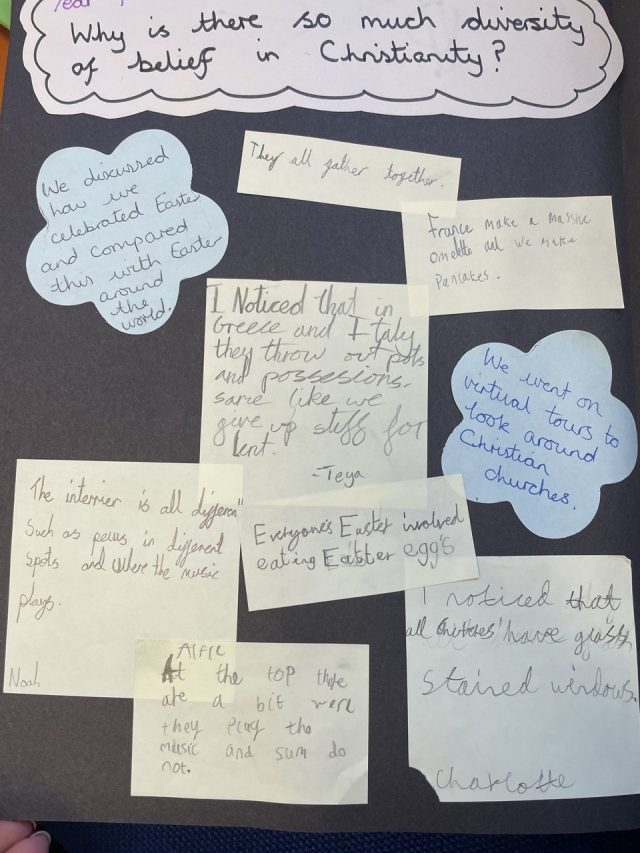 Year
Why is there so much diversity
of belief in Christianity?
We discussed
how we
celebrated Easter
and compared
this with Easter
around
the
world.
They all gather together.
France make a massive
omelette and we make
Pancakes.
I Noticed that in
Greece and Italy
they throw out pots
and possesions.
same like we
give up stuff for
lent.
-Teya
We went on
virtual tours to
look around
Christian
churches.
The interrier is all differen"
Such as pews in different
spots and where the music
plays.
Noah
Everyone's Easter involved
eating Easter egg's
I noticed that
all have glass
Stained windows.
Charlotte
Alfie
At the top there
are a bit were
they play the
music and sum do
not.